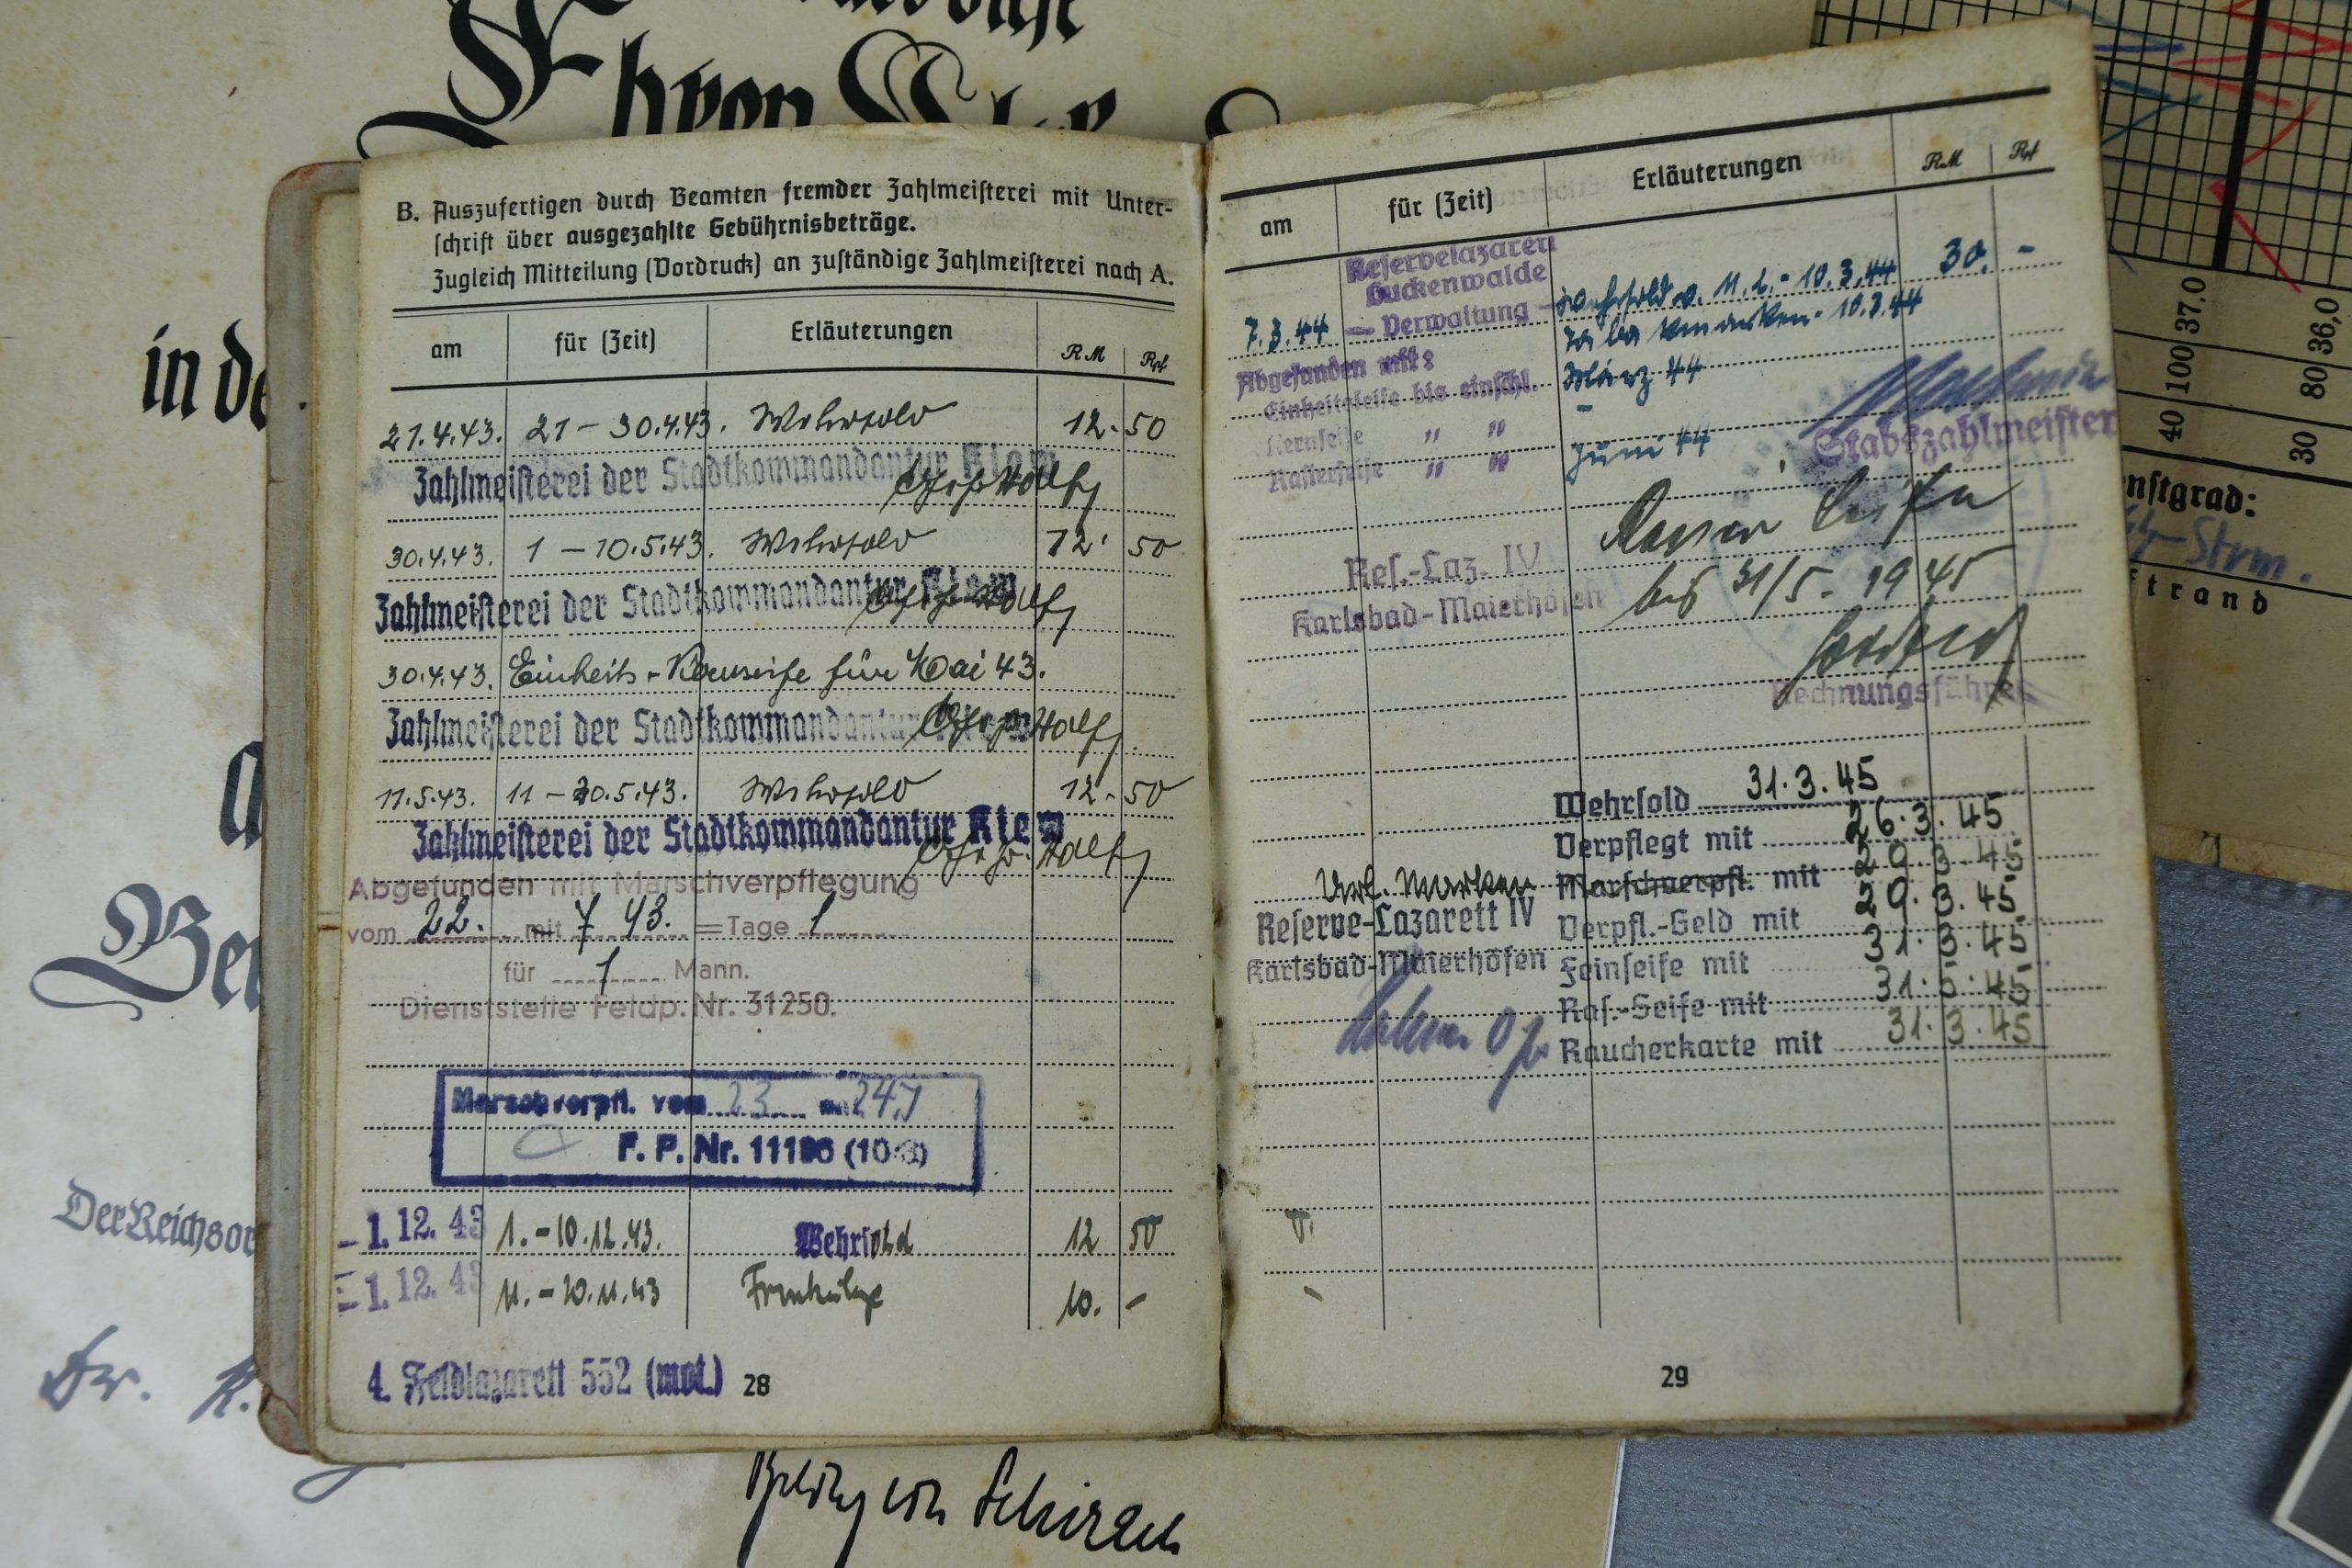 in de
Der Reichsor
Dr. K.
B. Auszufertigen durch Beamten fremder Zahlmeisterei mit Unter-
schrift über ausgezahlte Gebührnisbeträge.
Zugleich Mitteilung (Vordruck) an zuständige Zahlmeisterei nach A.
am für (Zeit) Erläuterungen RM Rpf
21.4.43. 21 – 30.4.43. Wehrsold 12.50
Zahlmeisterei der Stadtkommandantur Kiew
30.4.43. 1 – 10.5.43. Wehrsold 12. 50
Zahlmeisterei der Stadtkommandantur Kiew
30.4.43. Einheits- für Mai 43.
Zahlmeisterei der Stadtkommandantur
11.5.43. 11 – 20.5.43. Wehrsold 12.50
Zahlmeisterei der Stadtkommandantur Kiew
Abgefunden mit Marschverpflegung
vom 22. mit 7 43. = Tage 1
für 1 Mann.
Dienststelle Feldp. Nr. 31250.
Marschverpfl. vom 23 24.7
F. P. Nr.
- 1. 12. 43 1. – 10.12.43. Wehrsold 12 50
- 1. 12. 43 11. – 20.11.43 10. –
4. Feldlazarett 552 (mot.) 28
am für (Zeit) Erläuterungen RM Rpf
Reservelazarett
Luckenwalde
7.3.44 – Verwaltung – Wehrsold v. 11.2. – 10.3.44 30. –
10.3.44
Abgefunden mit:
Einheitsseife bis einschl. März 44
Kernseife " "
Rasierseife " " Juni 44
Stabszahlmeister
Res.-Laz. IV
Karlsbad-Maierhöfen
bis 31/5. 1945
Rechnungsführer
Wehrsold 31.3.45
Verpflegt mit 26.3.45
Url. Marken Marschverpfl. mit 29.3.45
Reserve-Lazarett IV Verpfl.-Geld mit 29.3.45
Karlsbad-Maierhöfen Feinseife mit 31.3.45
Ras.-Seife mit 31.5.45
Raucherkarte mit 31.3.45
29
37,0
36,0
100
80
40
30
nstgrad:
-Strm.
trand
von Schirach